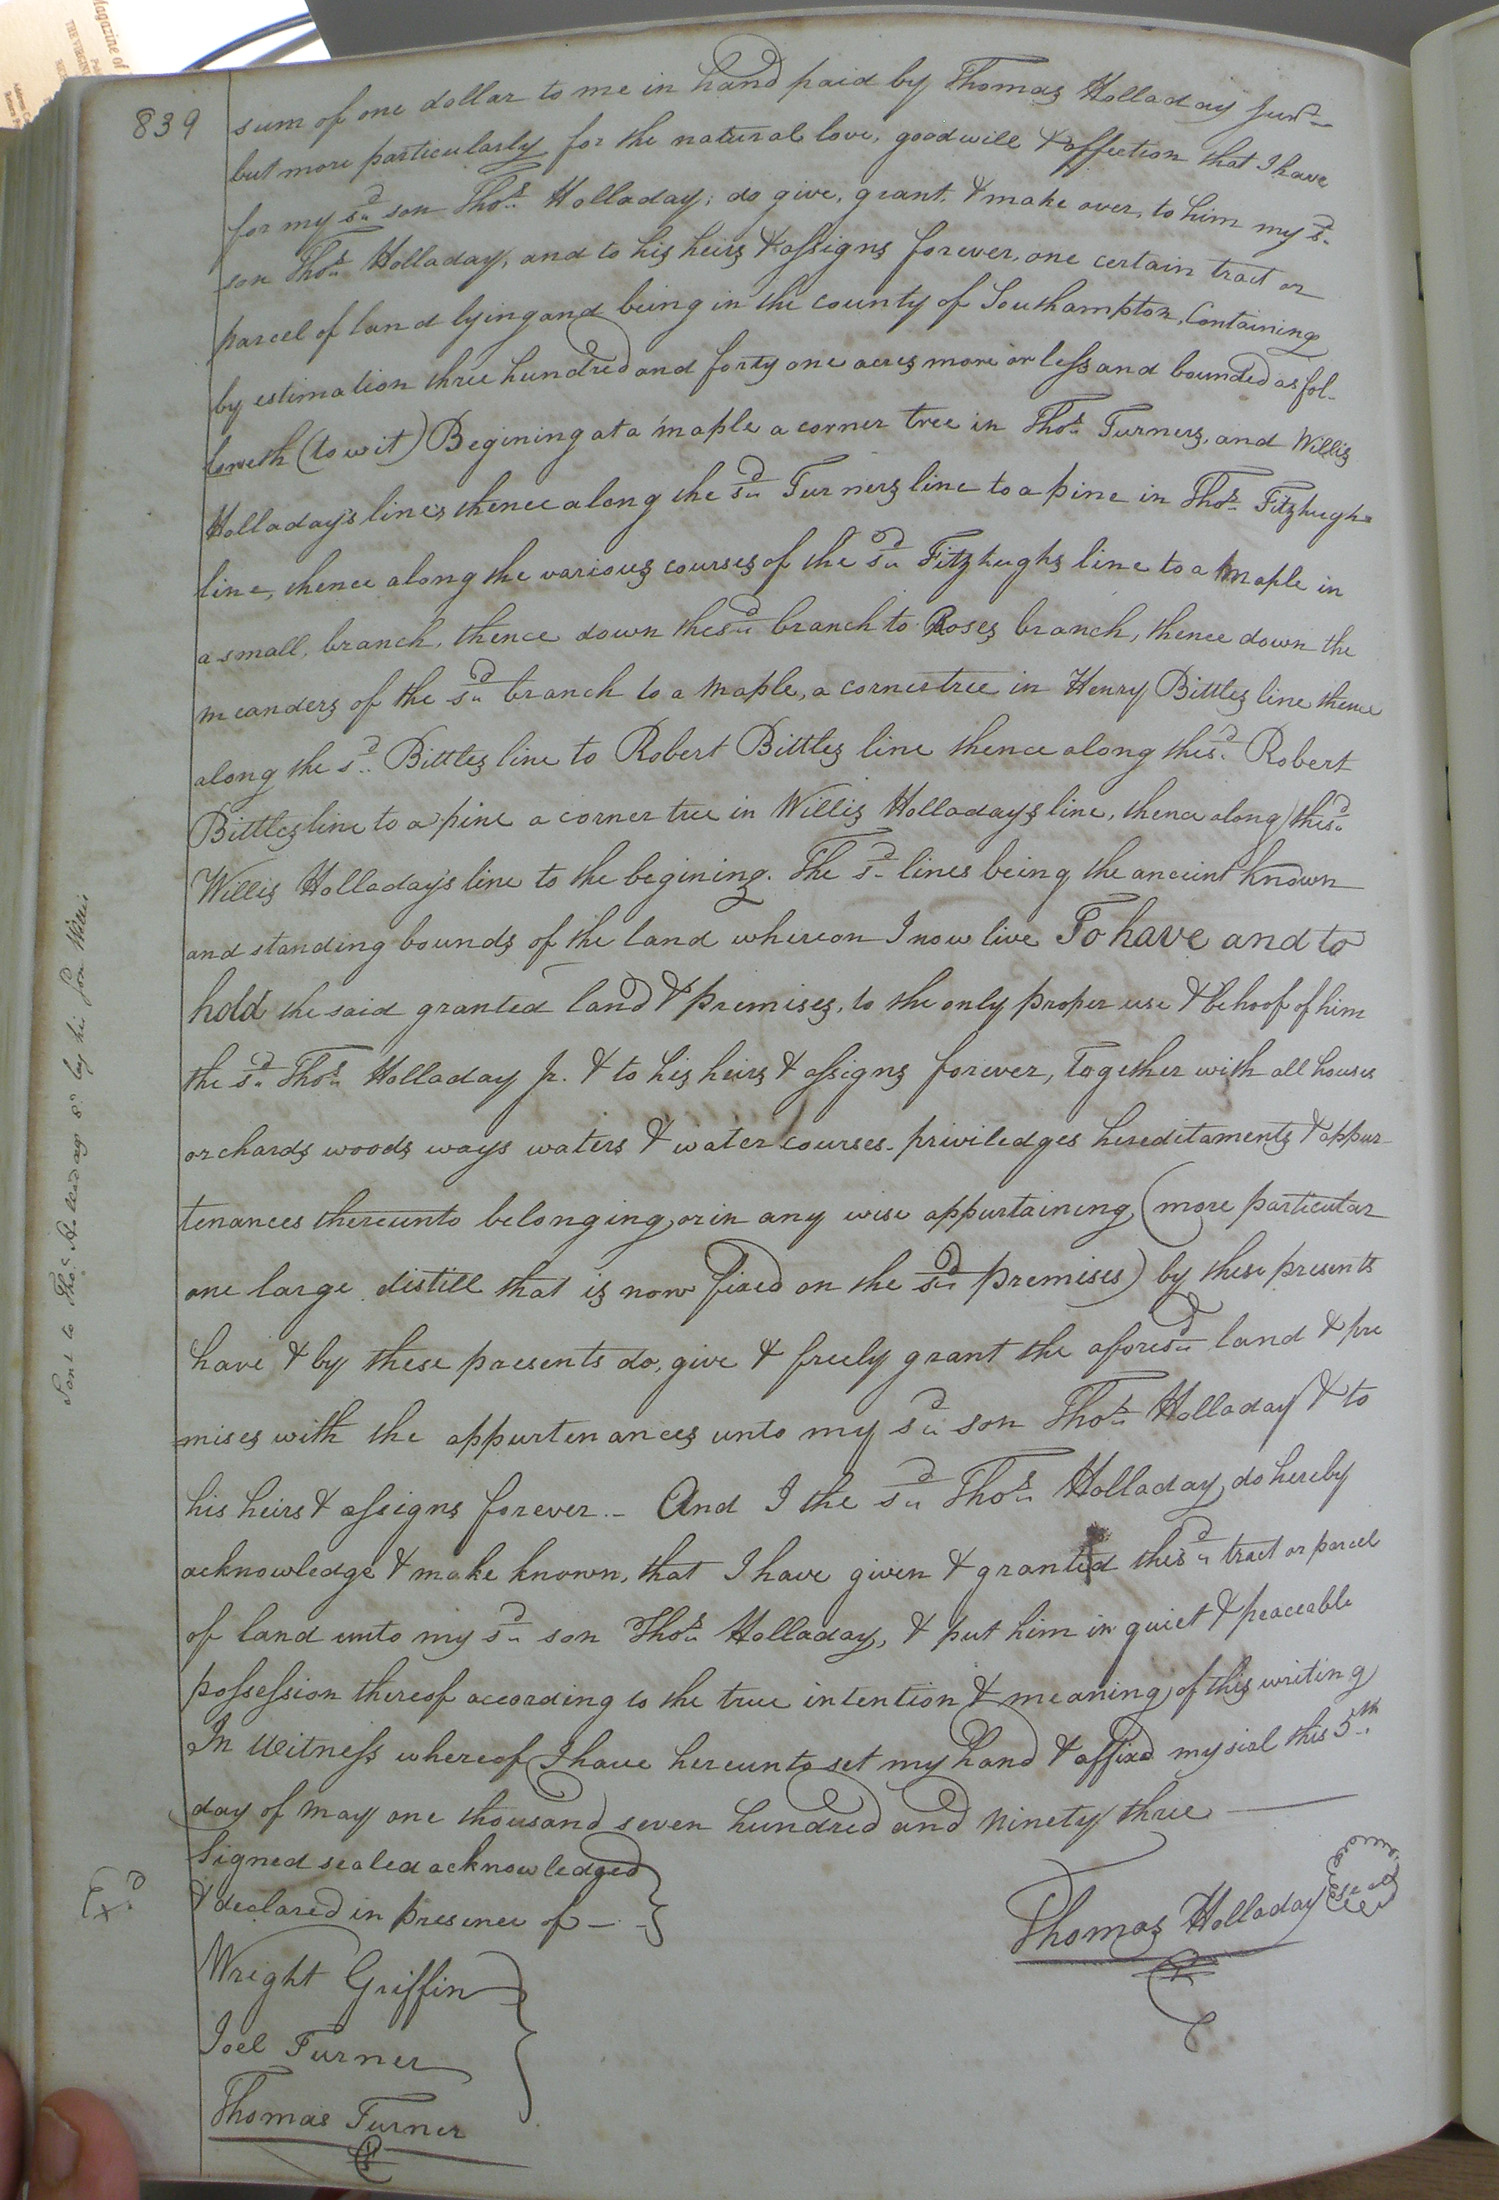 Magazine of
THE VIRGINIA
839
sum of one dollar to me in hand paid by Thomas Holladay Junr
but more particularly for the natural love, goodwill & affection that I have
for my sd son Thos Holladay; do give, grant, & make over, to him my sd
son Thos Holladay, and to his heirs & assigns forever, one certain tract or
parcel of land lying and being in the county of Southampton, Containing
by estimation three hundred and forty one acres more or less and bounded as fol-
loweth (to wit) Begining at a maple a corner tree in Thos Turners, and Willis
Holladay's lines thence along the sd Turners line to a pine in Thos Fitzhughs
line, thence along the various courses of the sd Fitzhughs line to a maple in
a small branch, thence down the sd branch to Roses branch, thence down the
meanders of the sd branch to a maple, a corner tree in Henry Bittles line thence
along the sd Bittles line to Robert Bittles line thence along the sd Robert
Bittles line to a pine a corner tree in Willis Holladays line, thence along the sd
Willis Holladay's line to the begining. The sd lines being the ancient known
and standing bounds of the land whereon I now live To have and to
hold the said granted land & premises, to the only proper use & behoof of him
the sd Thos Holladay Jr. & to his heirs & assigns forever, together with all houses
orchards woods ways waters & water courses priviledges hereditaments & appur-
tenances thereunto belonging, or in any wise appurtaining (more particular
one large distill that is now fixed on the sd premises) by these presents
have & by these presents do, give & freely grant the aforesd land & pre
mises with the appurtenances unto my sd son Thos Holladay & to
his heirs & assigns forever.- And I the sd Thos Holladay, do hereby
acknowledge & make known, that I have given & granted this sd tract or parcel
of land unto my sd son Thos Holladay, & put him in quiet & peaceable
possession thereof according to the true intention & meaning of this writing
In Witness whereof I have hereunto set my hand & affixd my seal this 5th
day of May one thousand seven hundred and ninety three
Signed sealed acknowledged
& declared in presence of
Thomas Holladay seal
Exd
Wright Griffin
Joel Turner
Thomas Turner
Sent to Thos Holladay Sr by his son Willis